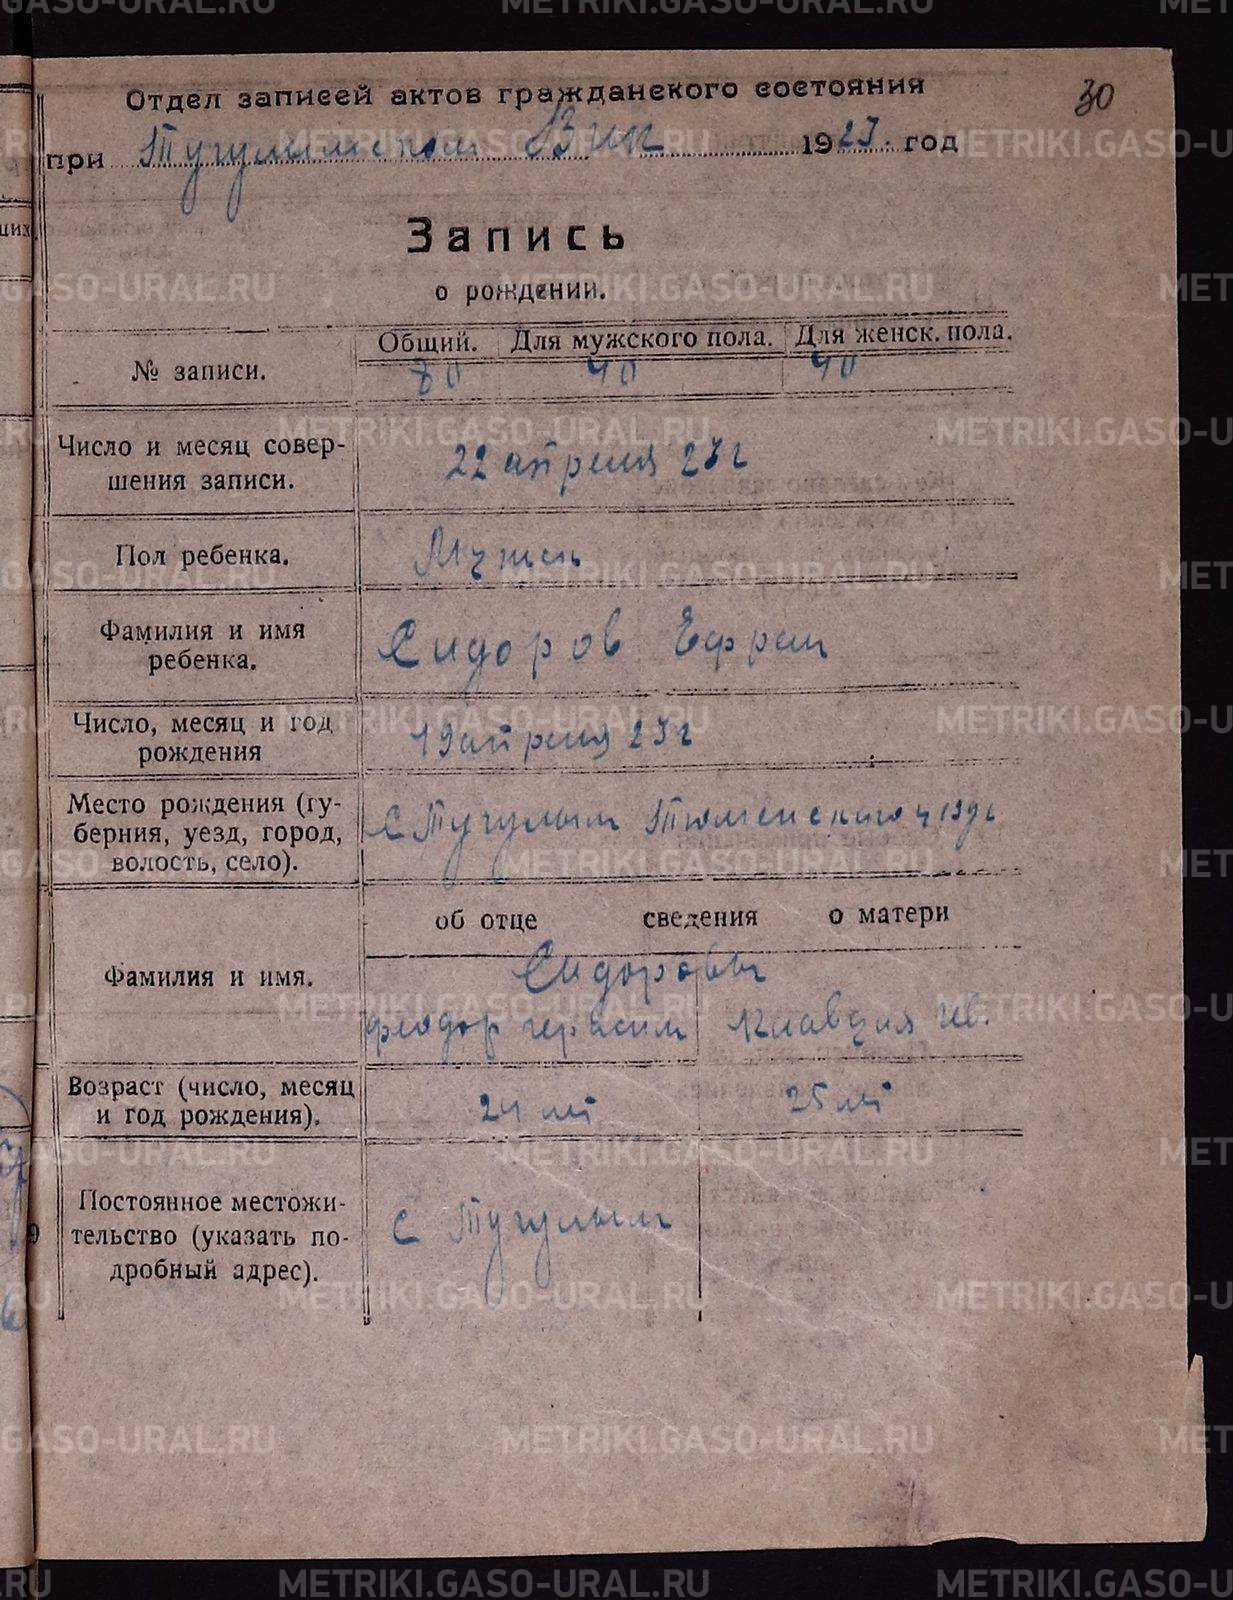 30
Отдел записей актов гражданского состояния
при Тугулымском Вик 1923. год
Запись
о рождении.
Общий. Для мужского пола. Для женск. пола.
№ записи. 80 40 40
Число и месяц совер-
шения записи.
22 апреля 23 г
Пол ребенка.
Мужск
Фамилия и имя
ребенка.
Сидоров Ефрем
Число, месяц и год
рождения
19 апреля 23 г
Место рождения (гу-
берния, уезд, город,
волость, село).
С Тугулым Тюменского уезд
об отце сведения о матери
Фамилия и имя.
Сидоровы
Феодор Герасим Клавдия Ив.
Возраст (число, месяц
и год рождения).
24 лет 25 лет
Постоянное местожи-
тельство (указать по-
дробный адрес).
С Тугулым
METRIKI.GASO-URAL.RU